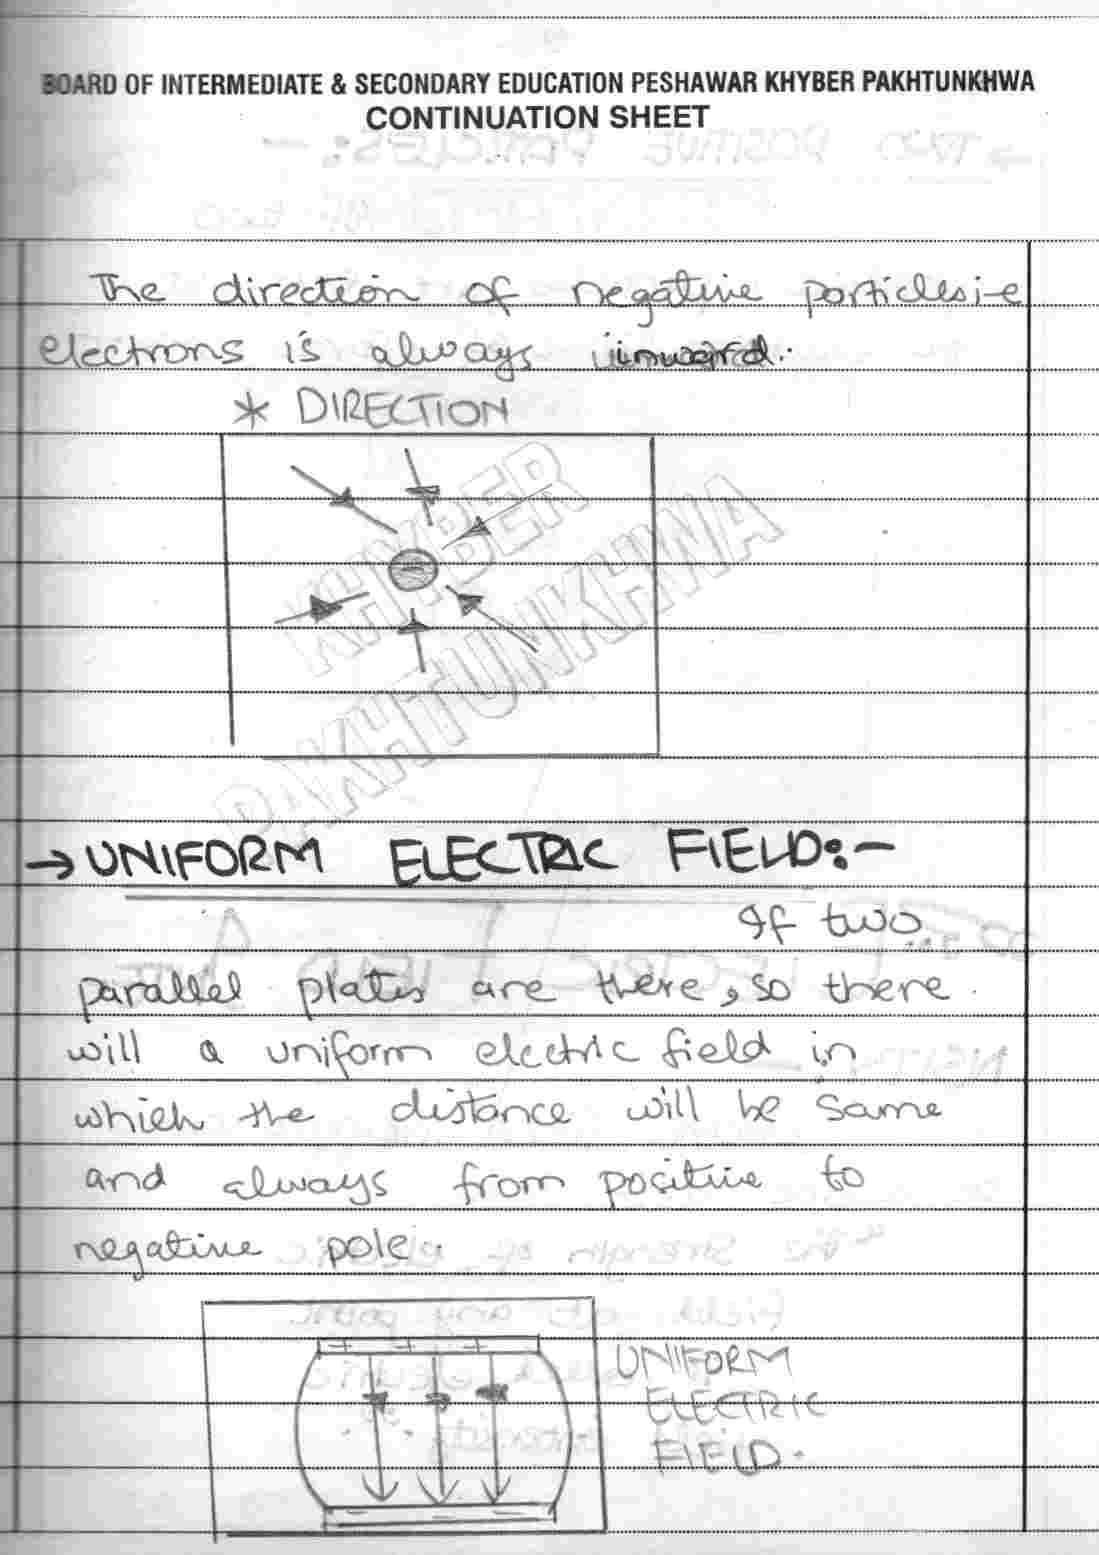 BOARD OF INTERMEDIATE & SECONDARY EDUCATION PESHAWAR KHYBER PAKHTUNKHWA
CONTINUATION SHEET
The direction of negative particles i-e
electrons is always inward.
* DIRECTION
KHYBER
PAKHTUNKHWA
→ UNIFORM ELECTRIC FIELD:-
If two
parallel plates are there, so there
will a uniform electric field in
which the distance will be same
and always from positive to
negative pole.
+ + +
UNIFORM
ELECTRIC
FIELD.
- - -